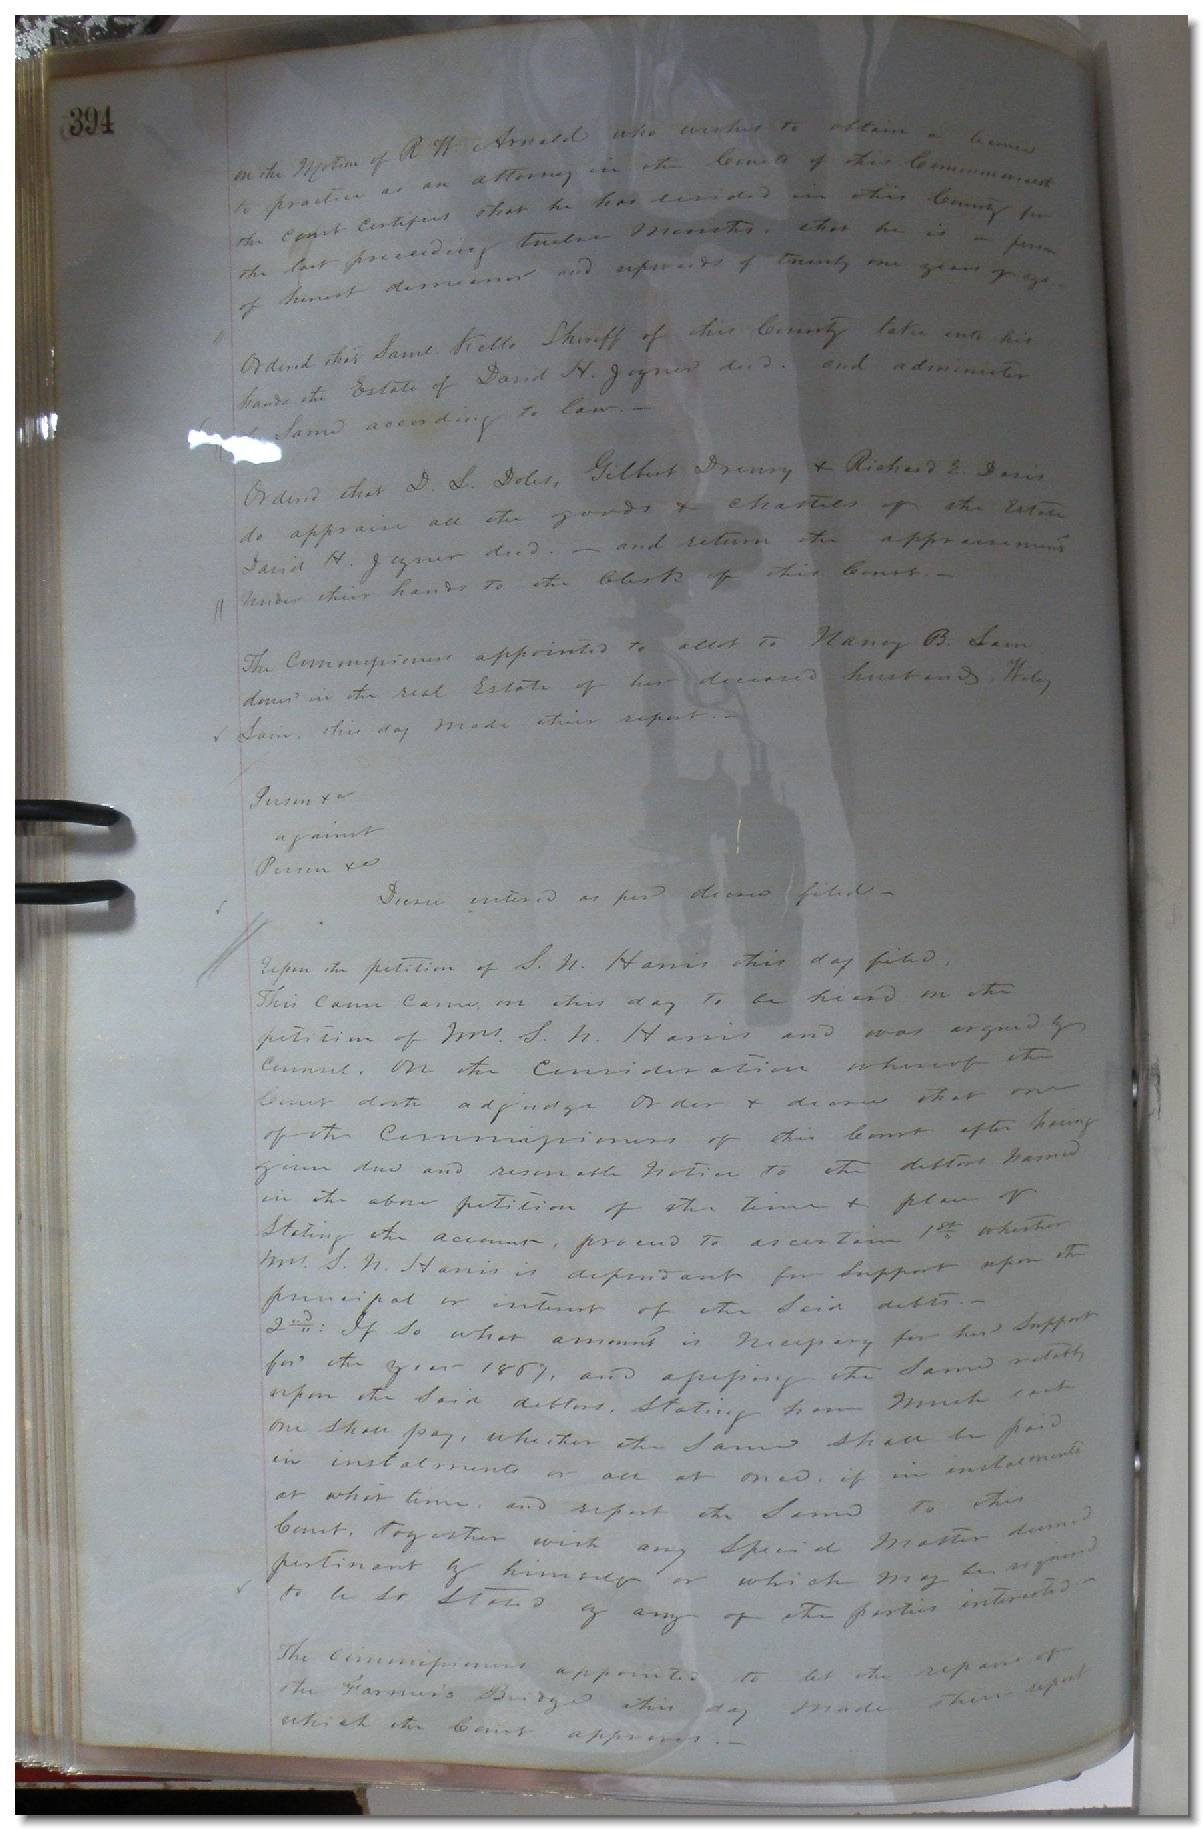 394
On the Motion of R. W. Arnold who wishes to obtain a license
to practice as an attorney in the Courts of this Commonwealth
the court certifies that he has resided in this County for
the last preceeding twelve Months, that he is a person
of honest demeanor and upwards of twenty one years of age.
Ordered that Saml. Kello Sheriff of this County take into his
hands the Estate of David H. Joyner decd. and administer
Same according to law. —
Ordered that D. S. Doles, Gilbert Drewry & Richard E. Davis
do appraise all the goods & chattels of the Estate
David H. Joyner decd. — and return the appraisement
Under their hands to the Clerk of this Court. —
The Commissioners appointed to allot to Nancy B. Lain
dower in the real Estate of her deceased husband, Wiley
Lain, this day Made their report. —
Person &c
against
Person &c
Decree entered as per decree filed —
Upon the petition of S. N. Harris this day filed.
This Cause Came on this day to be heard on the
petition of Mrs. S. N. Harris and was argued by
Counsel. On the Consideration whereof the
Court doth adjudge Order & decree that one
of the Commissioners of this Court after having
given due and resonable Notice to the debtors Named
in the above petition of the time & place of
Stating the account, proceed to ascertain 1st whether
Mrs. S. N. Harris is dependant for Support upon the
principal or interest of the Said debts. —
2nd: If So what amount is Necessary for her Support
for the year 1867, and assessing the Same ratably
upon the Said debtors, Stating how Much each
one Shall pay, whether the Same Shall be paid
in instalments or all at once, if in instalments
at what time, and report the Same to this
Court, together with any Special Matter deemed
pertinant by himself or which May be required
to be So Stated by any of the parties interested —
The Commissioners appointed to let the repairs of
the Farmer's Bridge this day Made their report
which the Court approves. —